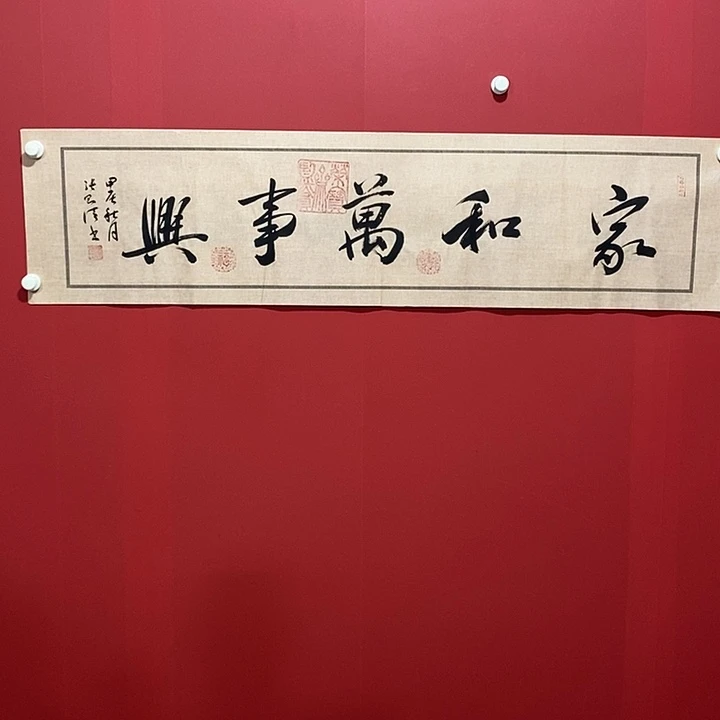 家和萬事興
甲辰秋月